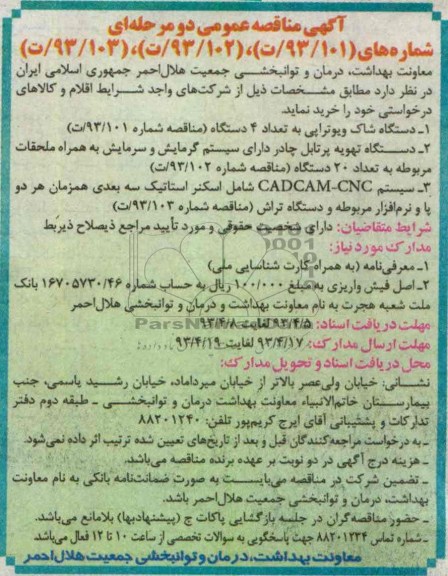 آگهی مناقصه عمومی دو مرحله‌ای
شماره‌های (۹۳/۱۰۱/ت)، (۹۳/۱۰۲/ت)، (۹۳/۱۰۳/ت)
معاونت بهداشت، درمان و توانبخشی جمعیت هلال‌احمر جمهوری اسلامی ایران
در نظر دارد مطابق مشخصات ذیل از شرکت‌های واجد شرایط اقلام و کالاهای
درخواستی خود را خرید نماید.
۱ـ دستگاه شاک ویوتراپی به تعداد ۴ دستگاه (مناقصه شماره ۹۳/۱۰۱/ت)
۲ـ دستگاه تهویه پرتابل چادر دارای سیستم گرمایش و سرمایش به همراه ملحقات
مربوطه به تعداد ۲۰ دستگاه (مناقصه شماره ۹۳/۱۰۲/ت)
۳ـ سیستم CADCAM-CNC شامل اسکنر استاتیک سه بعدی همزمان هر دو
پا و نرم‌افزار مربوطه و دستگاه تراش (مناقصه شماره ۹۳/۱۰۳/ت)
شرایط متقاضیان: دارای شخصیت حقوقی و مورد تأیید مراجع ذیصلاح ذیربط
مدارک مورد نیاز:
۱ـ معرفی‌نامه (به همراه کارت شناسایی ملی)
۲ـ اصل فیش واریزی به مبلغ ۱۰۰/۰۰۰ ریال به حساب شماره ۱۶۷۰۵۷۳۰/۴۶ بانک
ملت شعبه هجرت به نام معاونت بهداشت و درمان و توانبخشی هلال‌احمر
مهلت دریافت اسناد: ۹۳/۴/۵ لغایت ۹۳/۴/۸
مهلت ارسال مدارک: ۹۳/۴/۱۷ لغایت ۹۳/۴/۱۹
محل دریافت اسناد و تحویل مدارک:
نشانی: خیابان ولی‌عصر بالاتر از خیابان میرداماد، خیابان رشید یاسمی، جنب
بیمارستان خاتم‌الانبیاء معاونت بهداشت درمان و توانبخشی ـ طبقه دوم دفتر
تدارکات و پشتیبانی آقای ایرج کریم‌پور تلفن: ۸۸۲۰۱۲۴۰
ـ به درخواست مراجعه‌کنندگان قبل و بعد از تاریخ‌های تعیین شده ترتیب اثر داده نمی‌شود.
ـ هزینه درج آگهی در دو نوبت بر عهده برنده مناقصه می‌باشد.
ـ تضمین شرکت در مناقصه می‌بایست به صورت ضمانت‌نامه بانکی به نام معاونت
بهداشت، درمان و توانبخشی جمعیت هلال‌احمر باشد.
ـ حضور مناقصه‌گران در جلسه بازگشایی پاکات ج (پیشنهادبها) بلامانع می‌باشد.
ـ شماره تماس ۸۸۲۰۱۲۳۴ جهت پاسخگویی به سوالات تخصصی از ساعت ۱۰ تا ۱۲ فعال می‌باشد
معاونت بهداشت، درمان و توانبخشی جمعیت هلال‌احمر